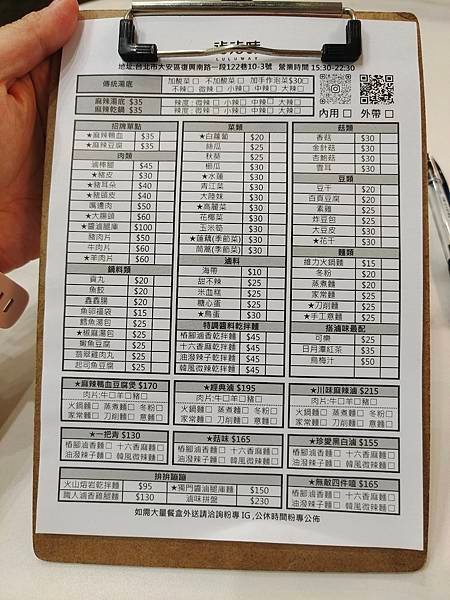 LULUWAY
地址:台北市大安區復興南路一段122巷10-3號 營業時間 15:30-22:30
傳統湯底 加酸菜□ 不加酸菜□ 加手作泡菜$30□
不辣□ 微辣□ 小辣□ 中辣□ 大辣□
麻辣湯底 $35 辣度:微辣□ 小辣□ 中辣□ 大辣□
麻辣乾鍋 $35 辣度:微辣□ 小辣□ 中辣□ 大辣□
內用□ 外帶□
招牌單點
★麻辣鴨血 $35
★麻辣豆腐 $35
肉類
滷棒腿 $45
★豬皮 $30
★豬耳朵 $40
★豬頭皮 $40
嘴邊肉 $50
★大腸頭 $60
★醬滷腿庫 $100
豬肉片 $50
牛肉片 $60
★羊肉片 $60
鍋料類
貢丸 $20
魚餃 $20
鑫鑫腸 $20
魚卵福袋 $15
鱈魚湯包 $25
★椒麻湯包 $25
蟹魚豆腐 $25
翡翠雞肉丸 $25
起司魚豆腐 $25
菜類
★白蘿蔔 $20
絲瓜 $25
秋葵 $25
櫛瓜 $30
★水蓮 $30
青江菜 $30
大陸妹 $30
★高麗菜 $30
花椰菜 $30
玉米筍 $30
★蓮藕(季節菜) $30
茼蒿(季節菜) $30
滷料
海帶 $10
甜不辣 $25
米血糕 $25
糖心蛋 $25
★鳥蛋 $30
特調醬料乾拌麵
椿腳滷香乾拌麵 $45
十六香麻乾拌麵 $45
油潑辣子乾拌麵 $45
韓風微辣乾拌麵 $45
菇類
香菇 $30
金針菇 $30
杏鮑菇 $30
雲耳 $30
豆類
豆干 $20
百頁豆腐 $20
素雞 $25
炸豆包 $25
大豆皮 $30
★花干 $30
麵類
維力火鍋麵 $15
冬粉 $20
蒸煮麵 $20
家常麵 $25
★刀削麵 $25
★手工意麵 $25
搭滷味最配
可樂 $25
日月潭紅茶 $35
烏梅汁 $50
★麻辣鴨血豆腐煲 $170
肉片:牛□羊□豬□
火鍋麵□ 蒸煮麵□ 冬粉□
家常麵□ 刀削麵□ 意麵□
★經典滷 $195
肉片:牛□羊□豬□
火鍋麵□ 蒸煮麵□ 冬粉□
家常麵□ 刀削麵□ 意麵□
★川味麻辣滷 $215
肉片:牛□羊□豬□
火鍋麵□ 蒸煮麵□ 冬粉□
家常麵□ 刀削麵□ 意麵□
★一把青 $130
椿腳滷香麵□ 十六香麻麵□
油潑辣子麵□ 韓風微辣麵□
★菇味 $165
椿腳滷香麵□ 十六香麻麵□
油潑辣子麵□ 韓風微辣麵□
★珍愛黑白滷 $155
椿腳滷香麵□ 十六香麻麵□
油潑辣子麵□ 韓風微辣麵□
拚拚蹦蹦
火山熔岩乾拌麵 $95 ★獨門醬滷腿庫麵 $150
職人滷香雞腿麵 $130 滷味拼盤 $230
★無敵四件嗑 $165
椿腳滷香麵□ 十六香麻麵□
油潑辣子麵□ 韓風微辣麵□
如需大量餐盒外送請洽詢粉專 IG ,公休時間粉專公佈